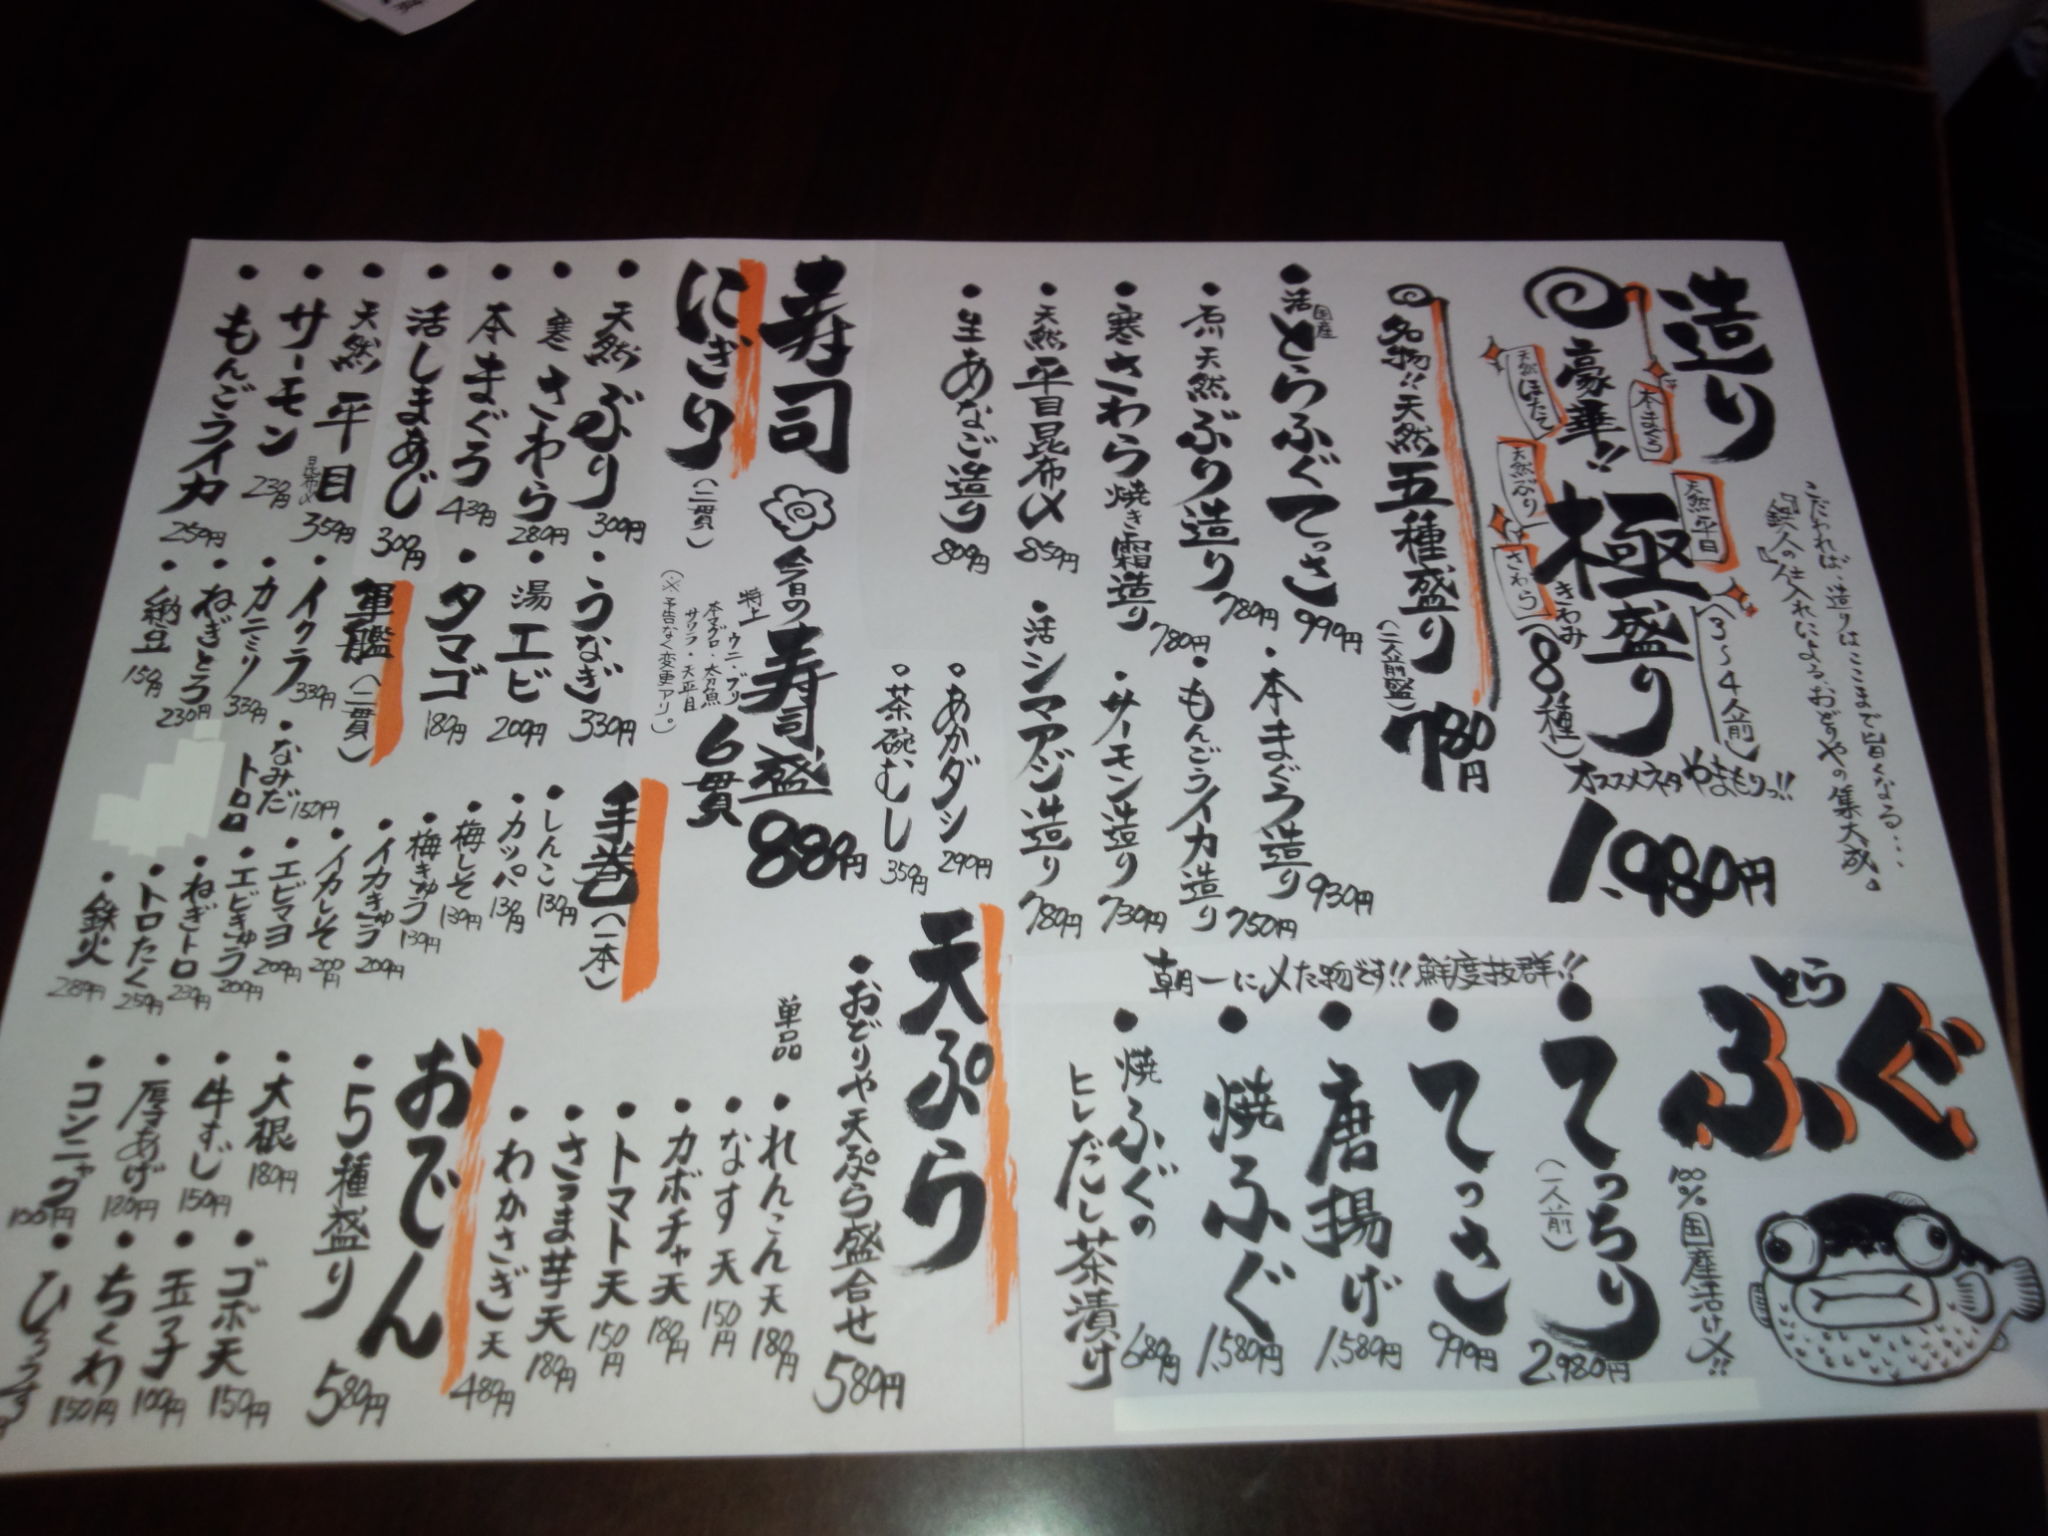 造り
こだわれば、造りはここまで旨くなる…
『鉄人の仕入れ』による、おどりやの集大成。
豪華!!極盛り
きわみ
(8種)
(3〜4人前)
本まぐろ
天然平目
天然ほたて
天然ぶり
さわら
オススメネタやまもりっ!!
1,980円
名物!!天然五種盛り
(二人前盛)
780円
・活国産とらふぐてっさ 999円
・石川天然ぶり造り 780円
・寒さわら焼き霜造り 780円
・天然平目昆布〆 859円
・生あなご造り 809円
・本まぐろ造り 930円
・もんごうイカ造り 750円
・サーモン造り 730円
・活シマアジ造り 780円
。あかダシ 290円
。茶碗むし 359円
とらふぐ
100%国産活け〆!!
朝一に〆た物です!!鮮度抜群!!
・てっちり (一人前) 2,980円
・てっさ 999円
・唐揚げ 1,580円
・焼ふぐ 1,580円
・焼ふぐの
ヒレだし茶漬け 680円
寿司
今日の寿司盛 880円
特上
ウニ・ブリ
本マグロ・太刀魚
サワラ・天平目
6貫
(※予告なく変更アリ。)
にぎり (二貫)
・天然ぶり 300円
・寒さわら 280円
・本まぐろ 430円
・活しまあじ 300円
・天然平目 昆布〆 359円
・サーモン 230円
・もんごうイカ 259円
・うなぎ 330円
・湯エビ 200円
・タマゴ 180円
軍艦 (二貫)
・イクラ 330円
・カニミソ 330円
・ねぎとろ 230円
・納豆 150円
・なみだ 150円
トロロ
手巻 (一本)
・しんこ 130円
・カッパ 130円
・梅しそ 130円
・梅きゅう 130円
・イカきゅう 200円
・イカしそ 200円
・エビマヨ 200円
・エビきゅう 200円
・ねぎトロ 230円
・トロたく 259円
・鉄火 280円
天ぷら
・おどりや天ぷら盛合せ 580円
単品
・れんこん天 180円
・なす天 150円
・カボチャ天 180円
・トマト天 150円
・さつま芋天 180円
・わかさぎ天 480円
おでん
・5種盛り 580円
・大根 180円
・牛すじ 150円
・厚あげ 120円
・コンニャク 100円
・ゴボ天 150円
・玉子 100円
・ちくわ 150円
・ひろうす